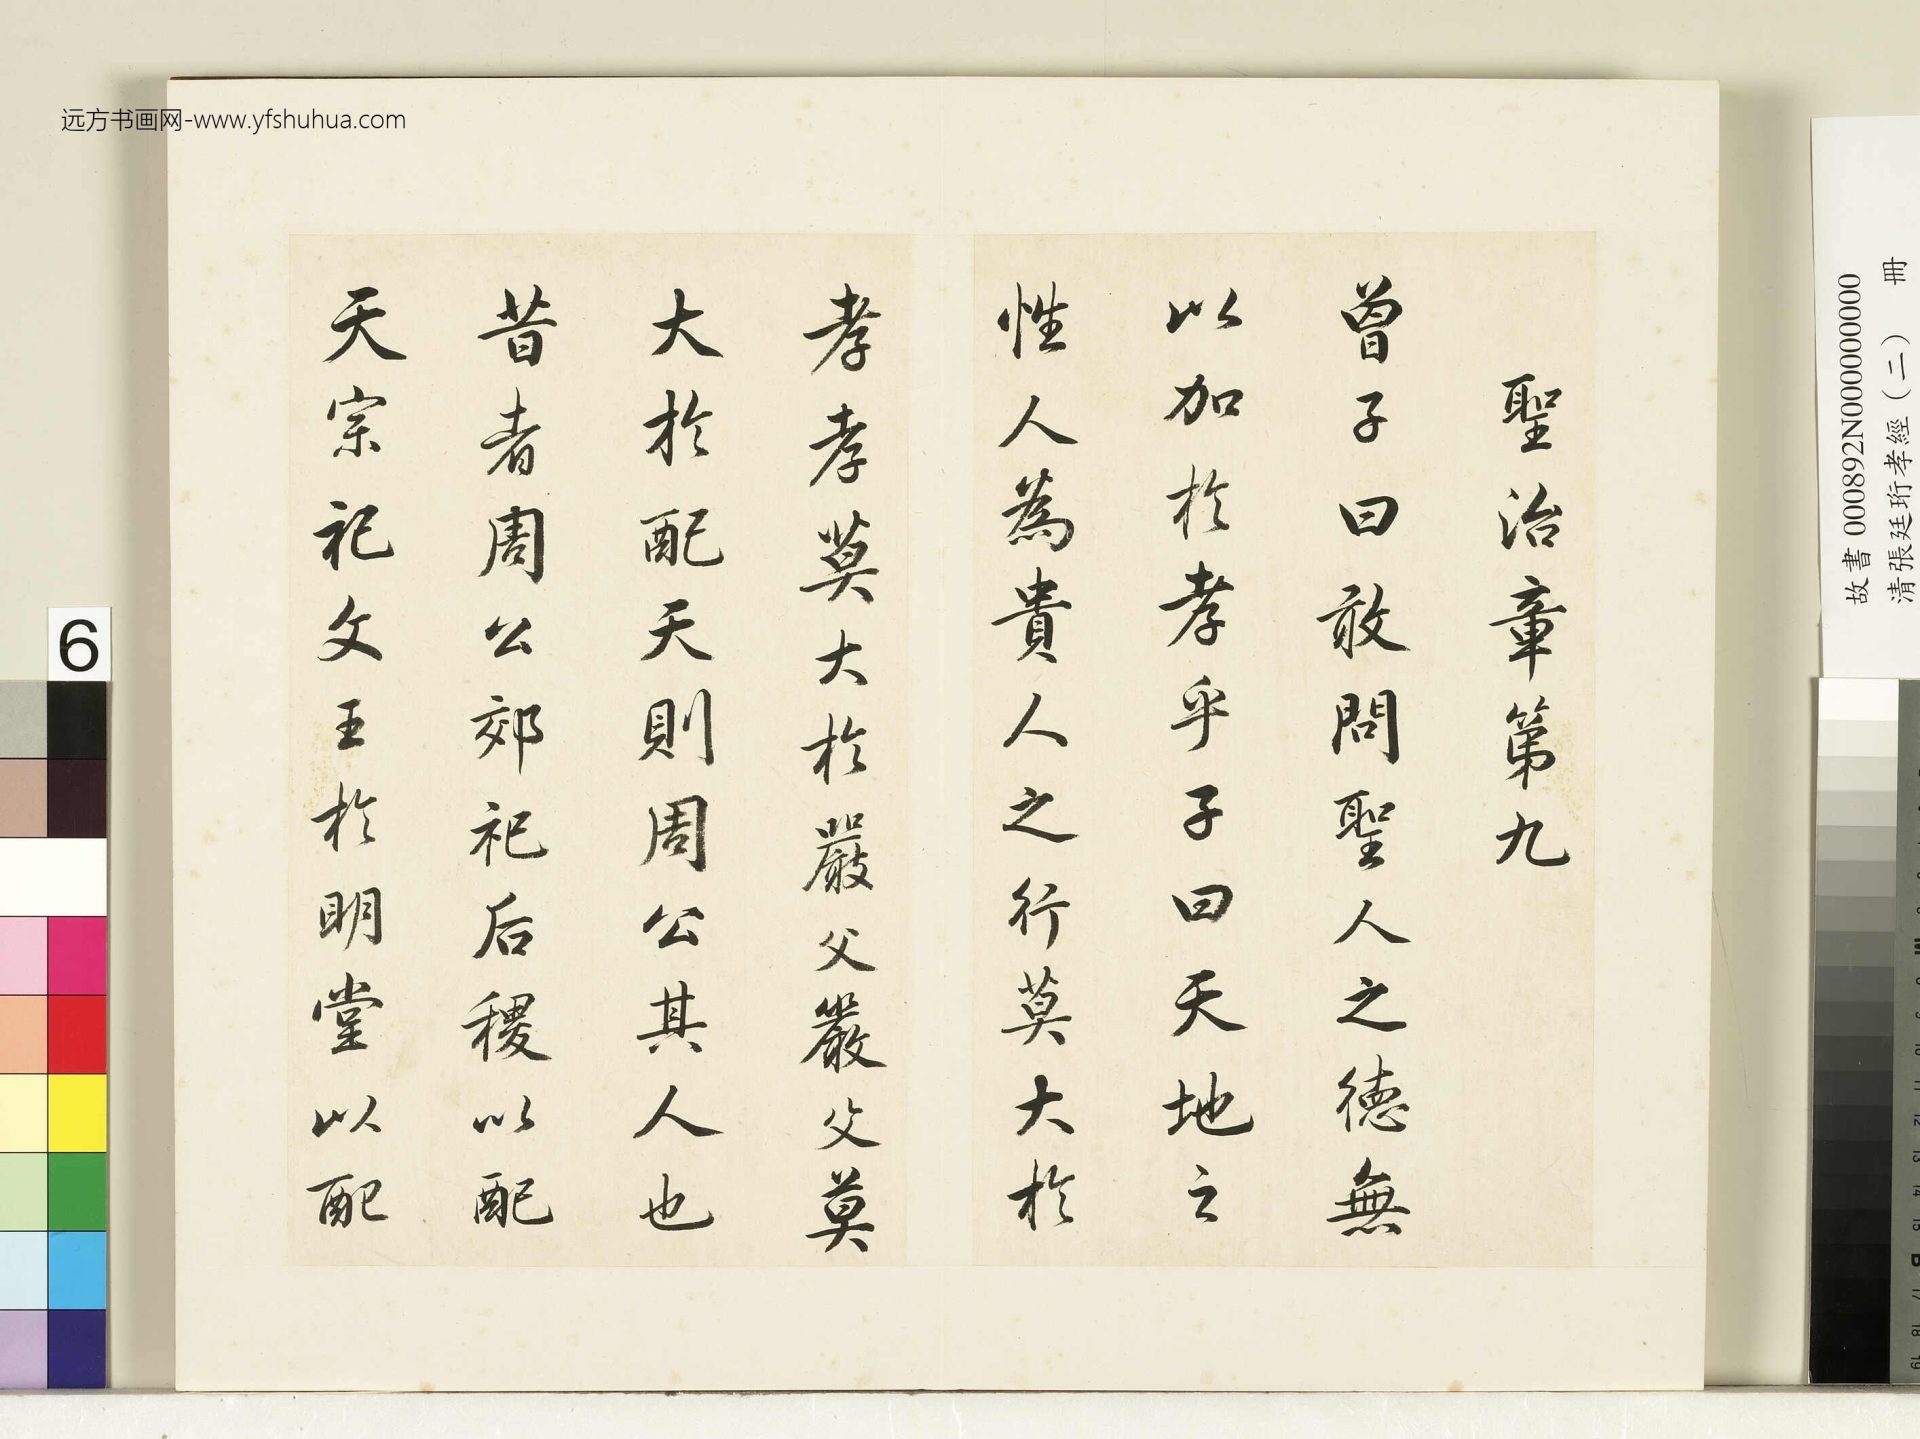 聖治章第九
曾子曰敢問聖人之德無
以加於孝乎子曰天地之
性人為貴人之行莫大於
孝孝莫大於嚴父嚴父莫
大於配天則周公其人也
昔者周公郊祀后稷以配
天宗祀文王於明堂以配
远方书画网-www.yfshuhua.com
故書 000892N000000000
清張廷珩孝經（二） 冊
6